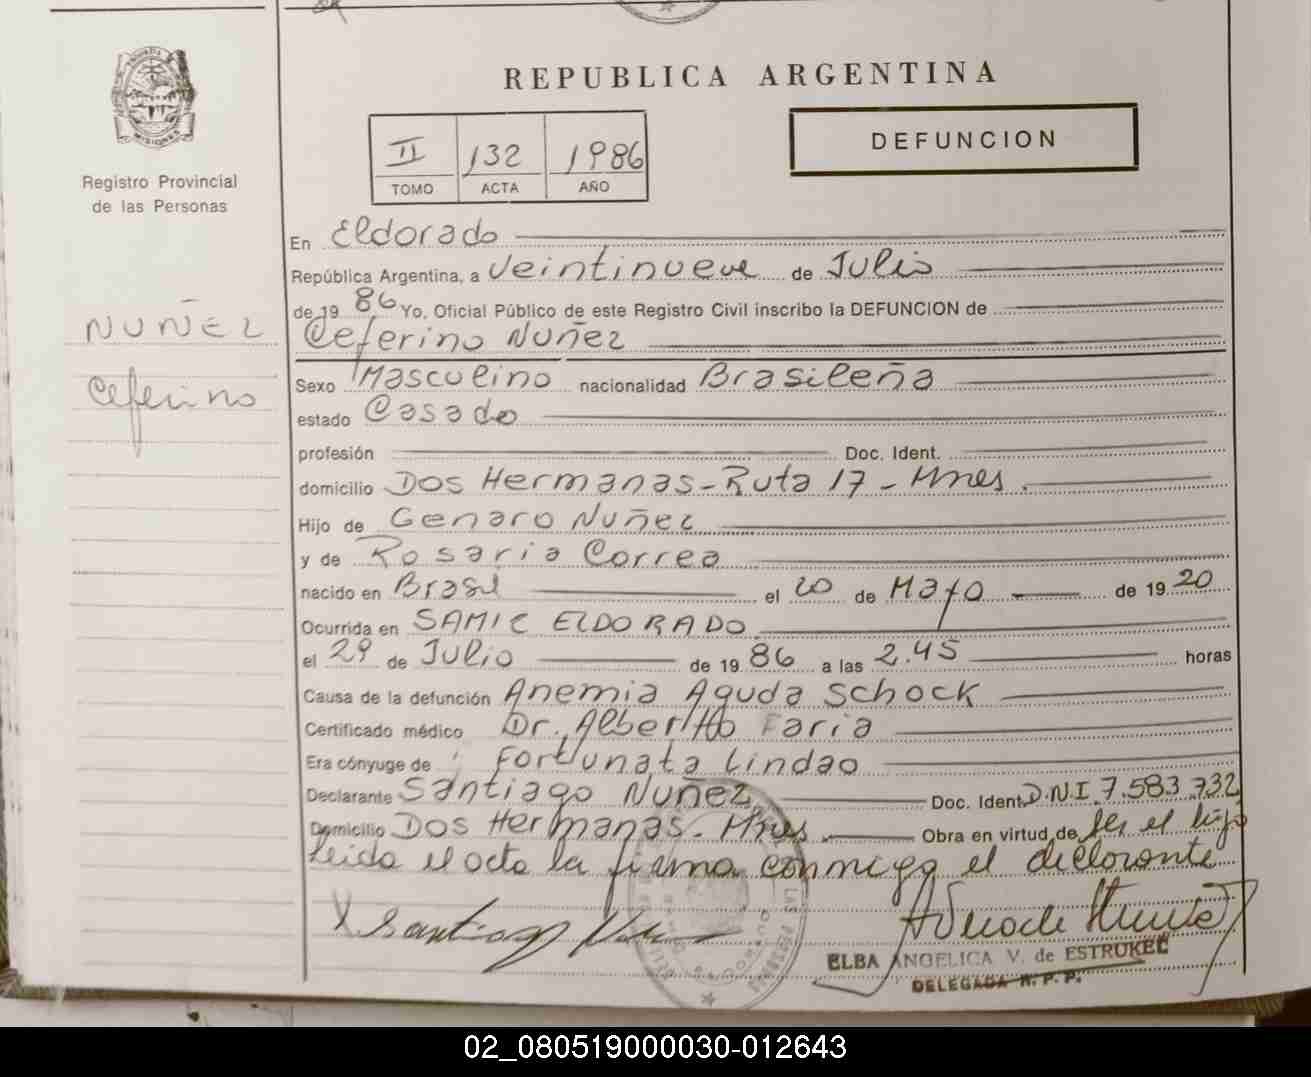 REPUBLICA ARGENTINA
DEFUNCION
II 132 1986
TOMO ACTA AÑO
MISIONES
Registro Provincial
de las Personas
NUÑEZ
Ceferino
En Eldorado
República Argentina, a veintinueve de Julio
de 19 86 Yo, Oficial Público de este Registro Civil inscribo la DEFUNCION de
Ceferino Nuñez
Sexo Masculino nacionalidad Brasileña
estado Casado
profesión Doc. Ident.
domicilio Dos Hermanas - Ruta 17 - Mnes.
Hijo de Genaro Nuñez
y de Rosaria Correa
nacido en Brasil el 20 de Mayo de 19 20
Ocurrida en SAMIC ELDORADO
el 29 de Julio de 19 86 a las 2.45 horas
Causa de la defunción Anemia Aguda Schock
Certificado médico Dr. Alberto Faria
Era cónyuge de Fortunata Lindao
Declarante Santiago Nuñez Doc. Ident. D.N.I. 7.583.732
Domicilio Dos Hermanas - Mnes. Obra en virtud de ser el hijo
leida el acta la firma conmigo el declarante
X Santiago
ELBA ANGELICA V. de ESTRUKEL
DELEGADA R. P. P.
02_080519000030-012643